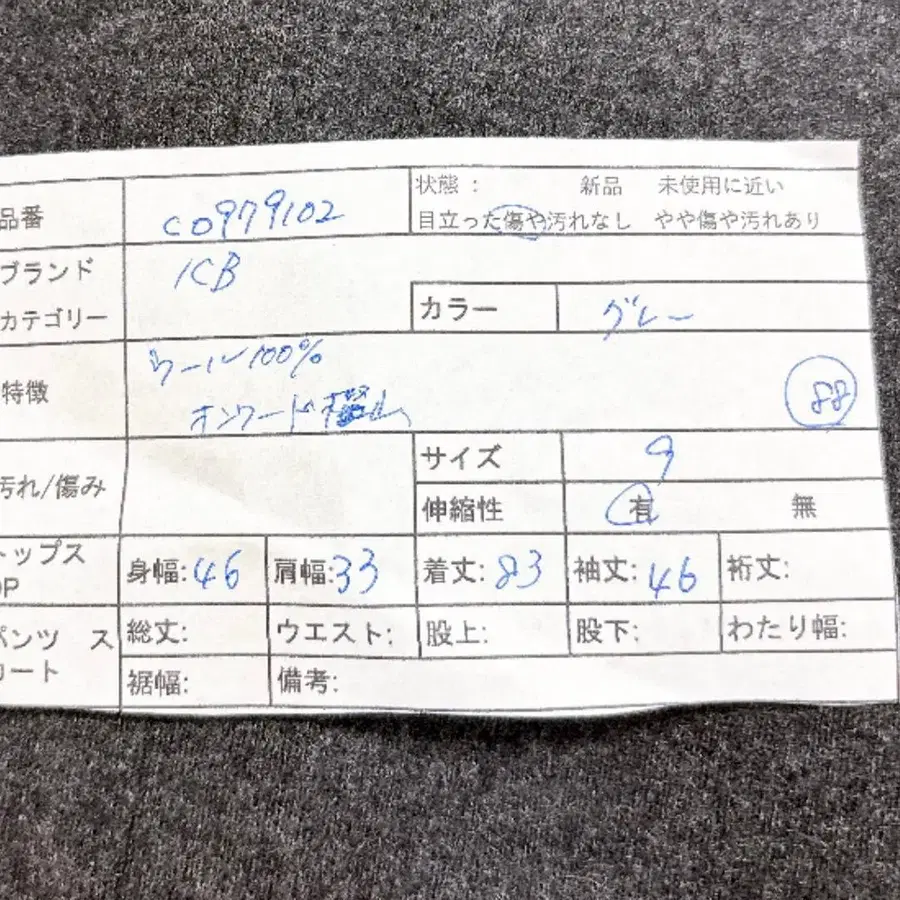 品番 CO979102 状態： 新品 未使用に近い
目立った傷や汚れなし やや傷や汚れあり
ブランド ICB
カテゴリー カラー グレー
特徴 ウール100%
オンワード樫山
88
汚れ/傷み サイズ 9
伸縮性 有 無
トップス 身幅:46 肩幅:33 着丈:83 袖丈:46 裄丈:
OP
パンツ ス 総丈: ウエスト: 股上: 股下: わたり幅:
カート 裾幅: 備考: